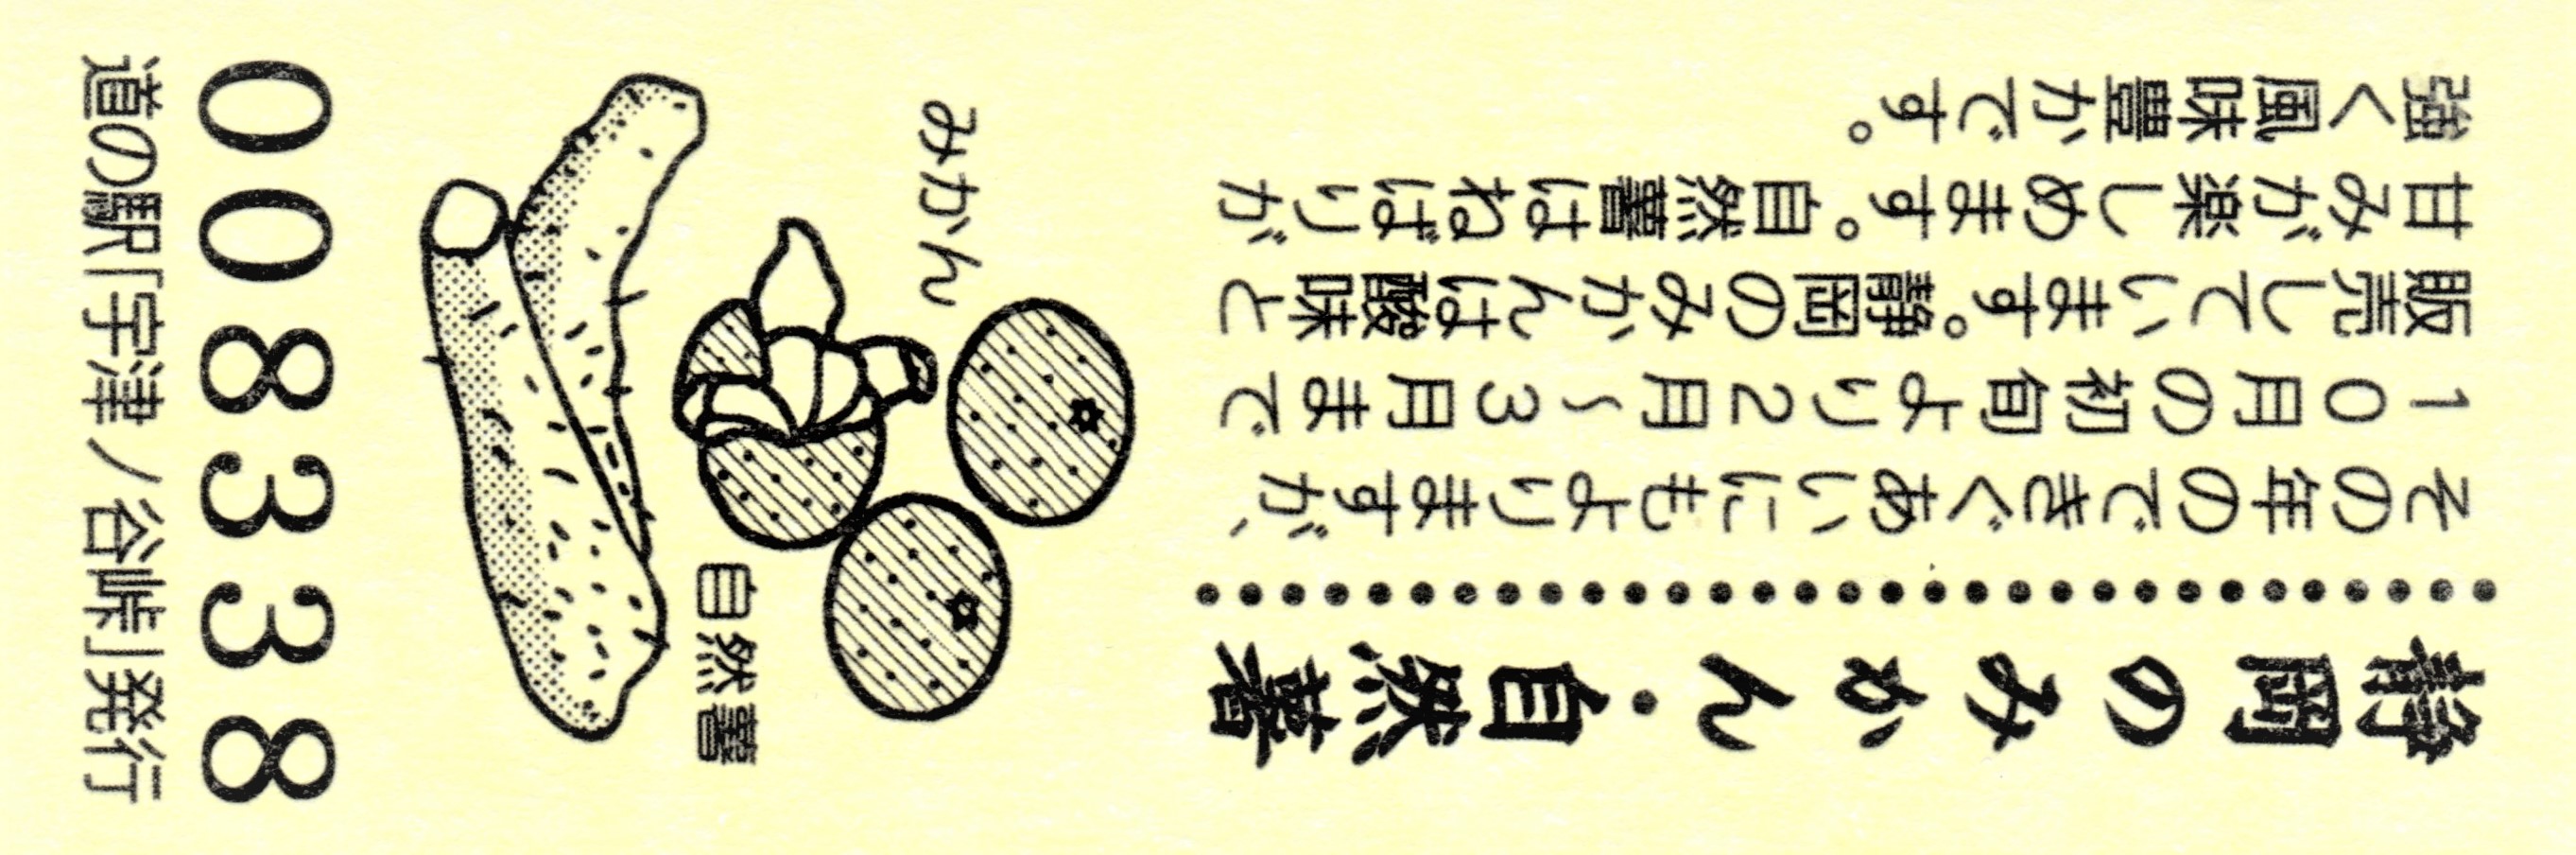 静岡のみかん・自然薯
その年のできぐあいにもよりますが、
10月の初旬より2月〜3月まで
販売しています。静岡のみかんは酸味と
甘みが楽しめます。自然薯はねばりが
強く風味豊かです。
みかん
自然薯
008338
道の駅「宇津ノ谷峠」発行